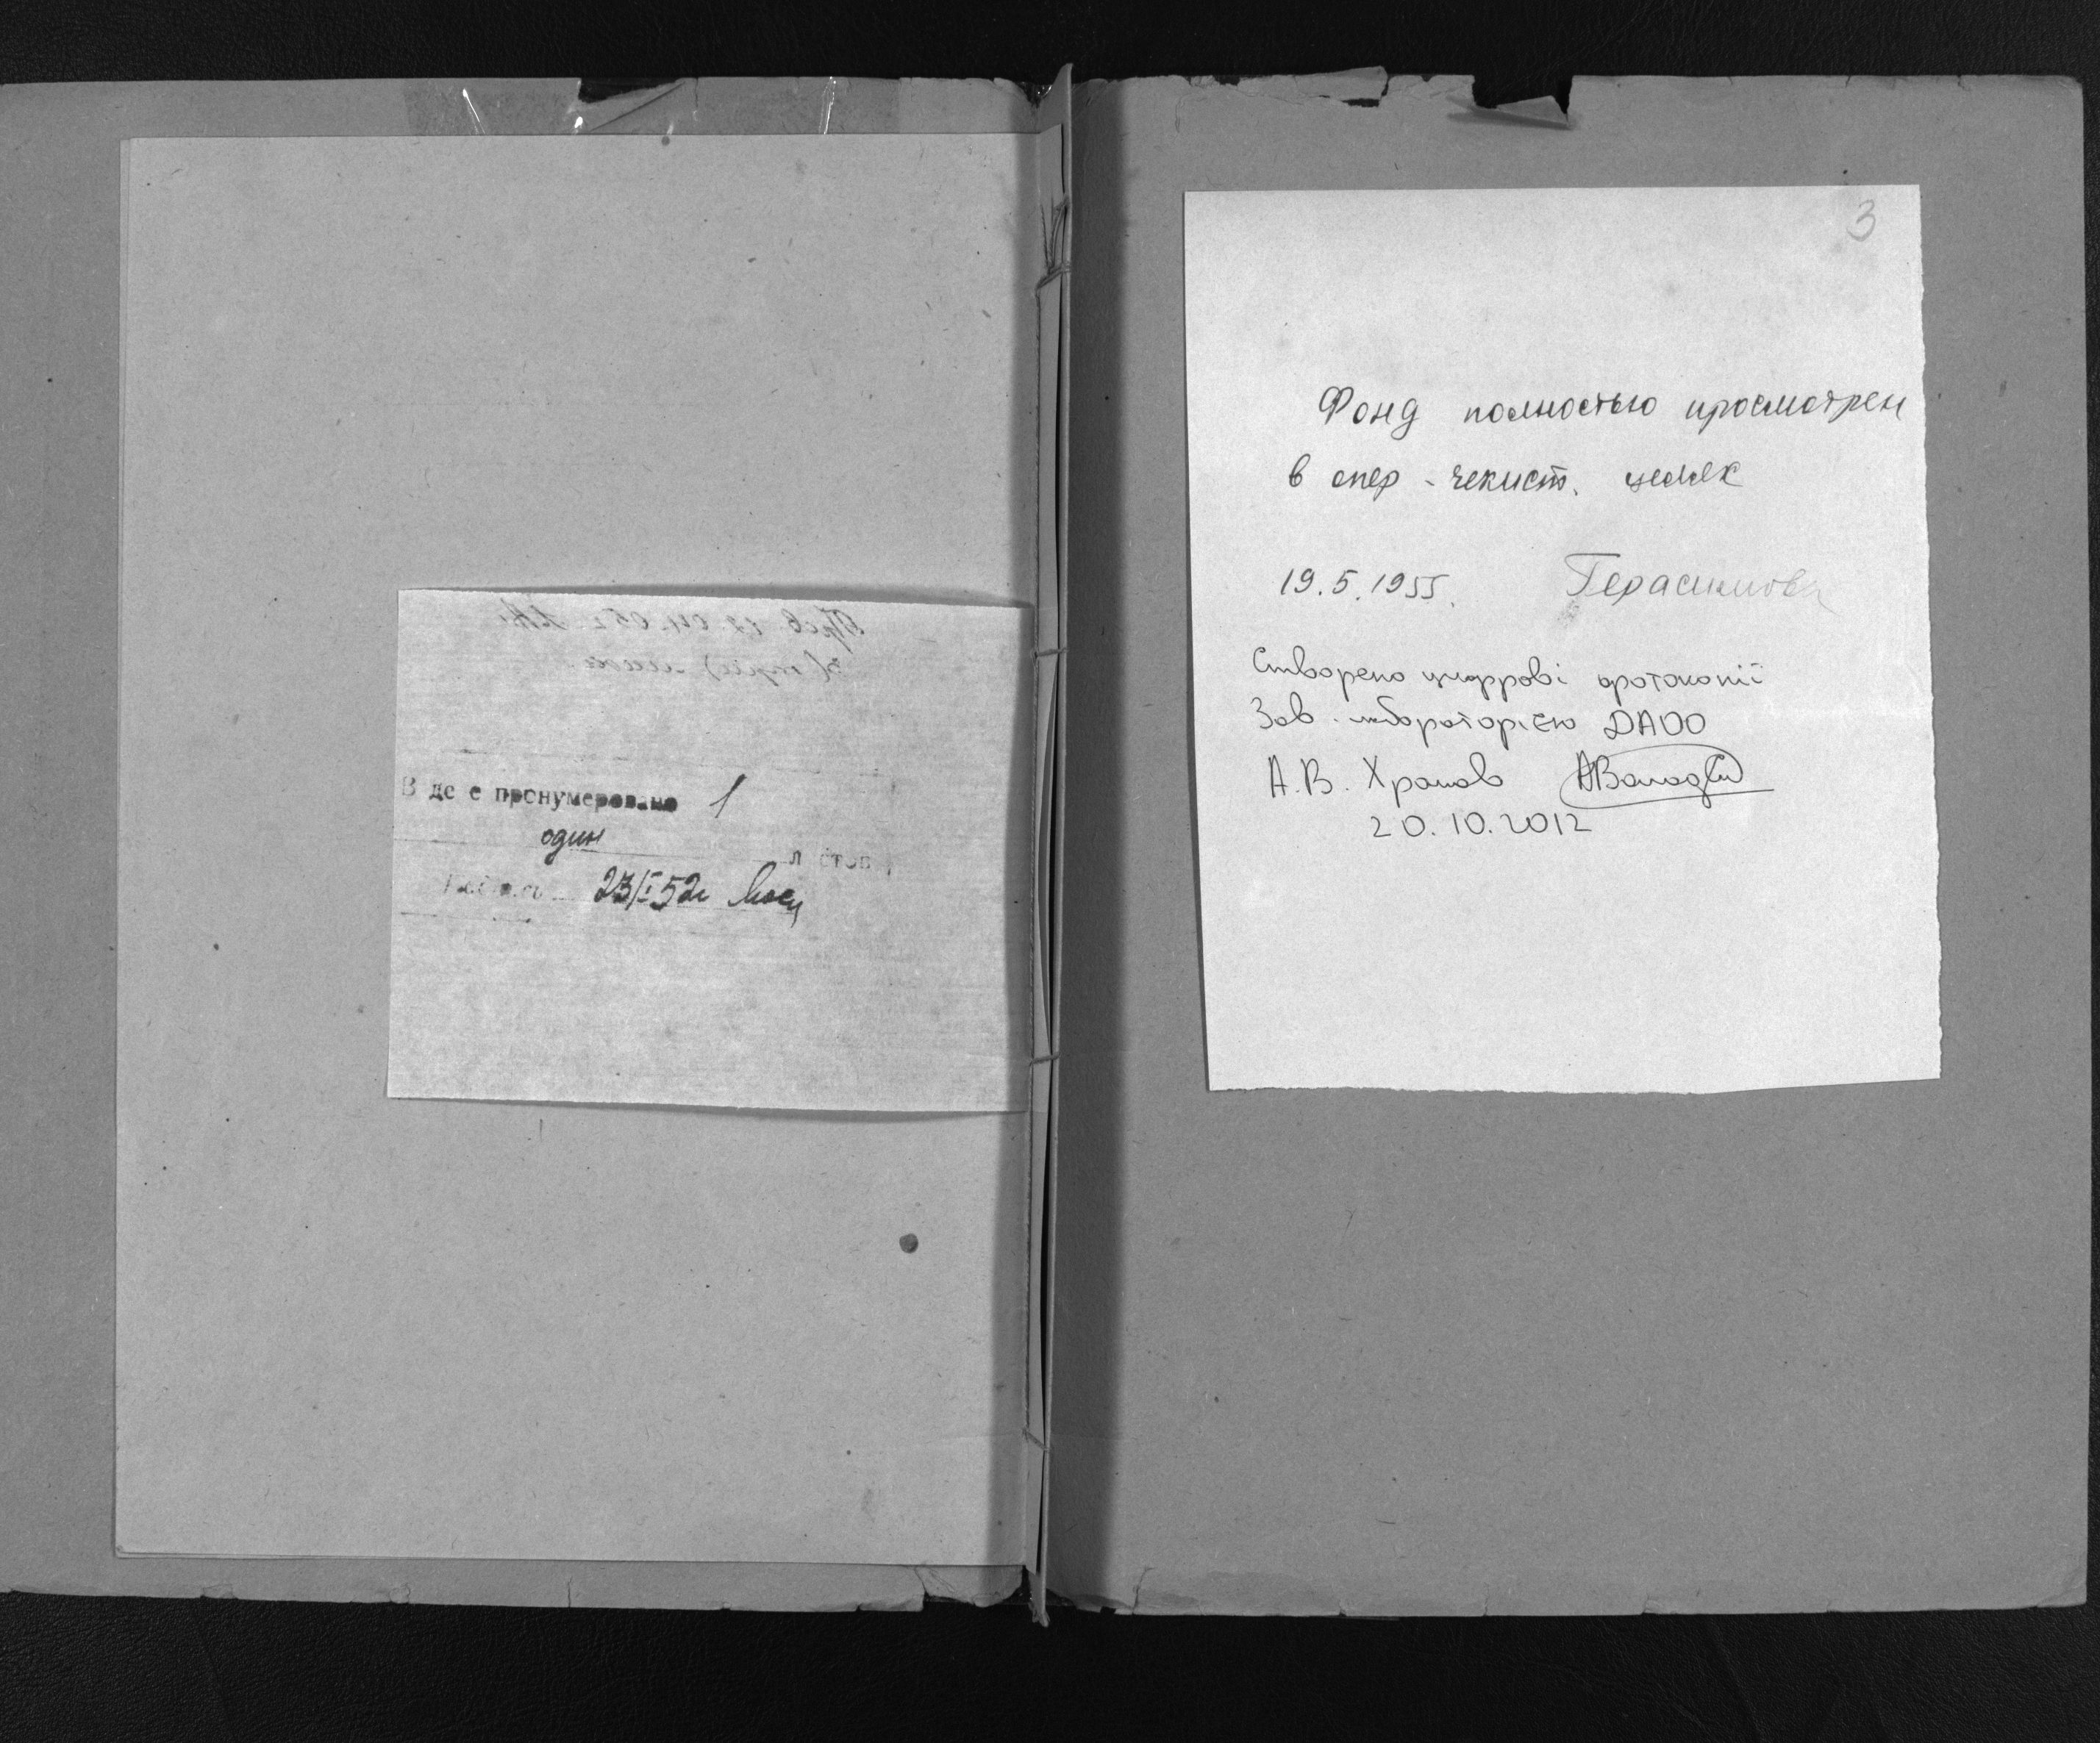 В де е пронумеровано 1
один
л стов
23/I 52г
3
Фонд полностью просмотрен
в опер - чекист. целях
19.5.1955. Герасимова
Створено цифрові фотокопії
Зав. лабораторією ДАОО
А.В. Храмов
20.10.2012